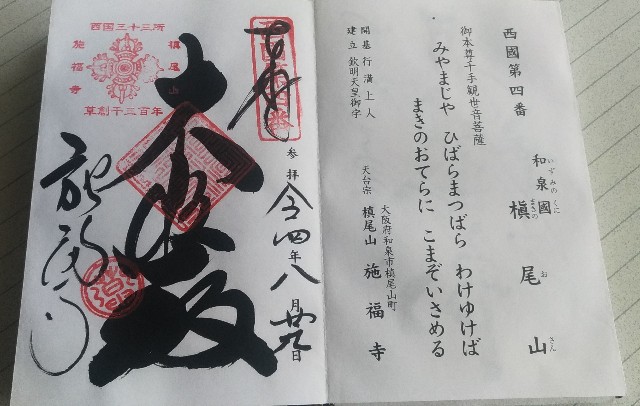 西國第四番
和泉國 槇尾山
いずみのくに まきの お さん
御本尊千手観世音菩薩
みやまじや ひばらまつばら わけゆけば
まきのおてらに こまぞいさめる
開基 行満上人
建立 欽明天皇御宇
大阪府和泉市槙尾山町
天台宗 槙尾山 施福寺
西国第四番
参拝 令四年八月廿九日
大悲殿
西国三十三所
槙尾山
施福寺
草創千三百年
施福寺